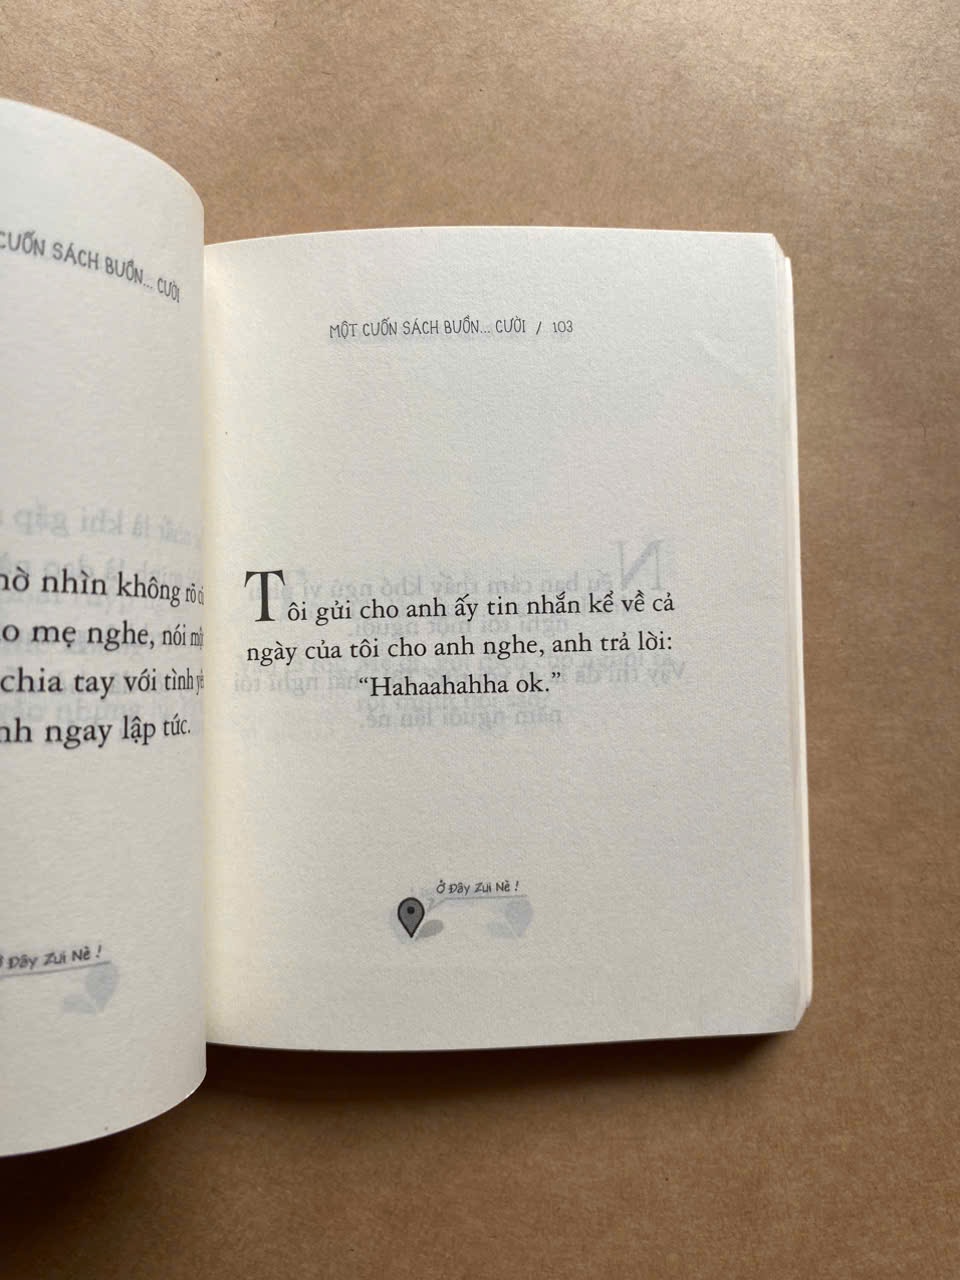 CUỐN SÁCH BUỒN... CƯỜI
nhìn không rõ
mẹ nghe, nói
chia tay với tình
ngay lập tức.
Ở Đây Zui Nè !
MỘT CUỐN SÁCH BUỒN... CƯỜI / 103
Tôi gửi cho anh ấy tin nhắn kể về cả
ngày của tôi cho anh nghe, anh trả lời:
“Hahaahahha ok.”
Ở Đây Zui Nè !